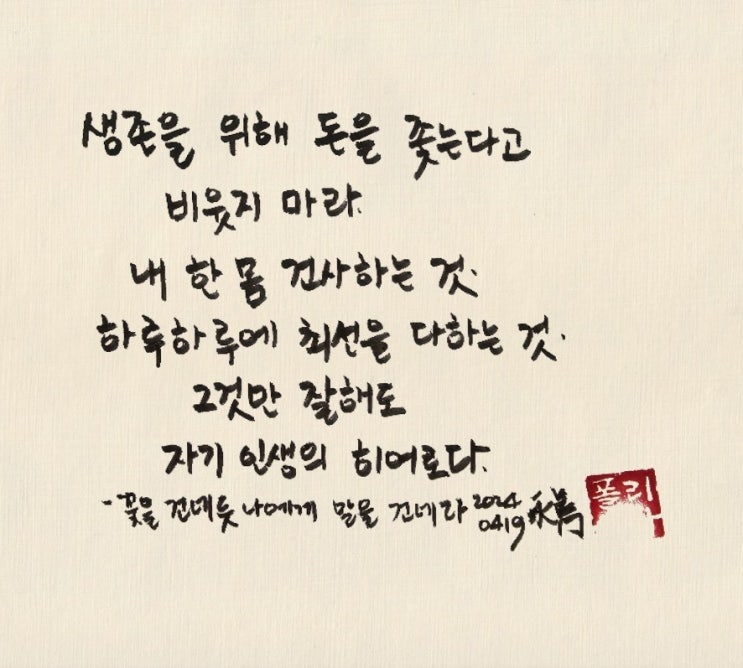 생존을 위해 돈을 좇는다고
비웃지 마라.
내 한 몸 건사하는 것.
하루하루에 최선을 다하는 것.
그것만 잘해도
자기 인생의 히어로다.
- 꽃을 건네듯 나에게 말을 건네라 2024
0419
폴리